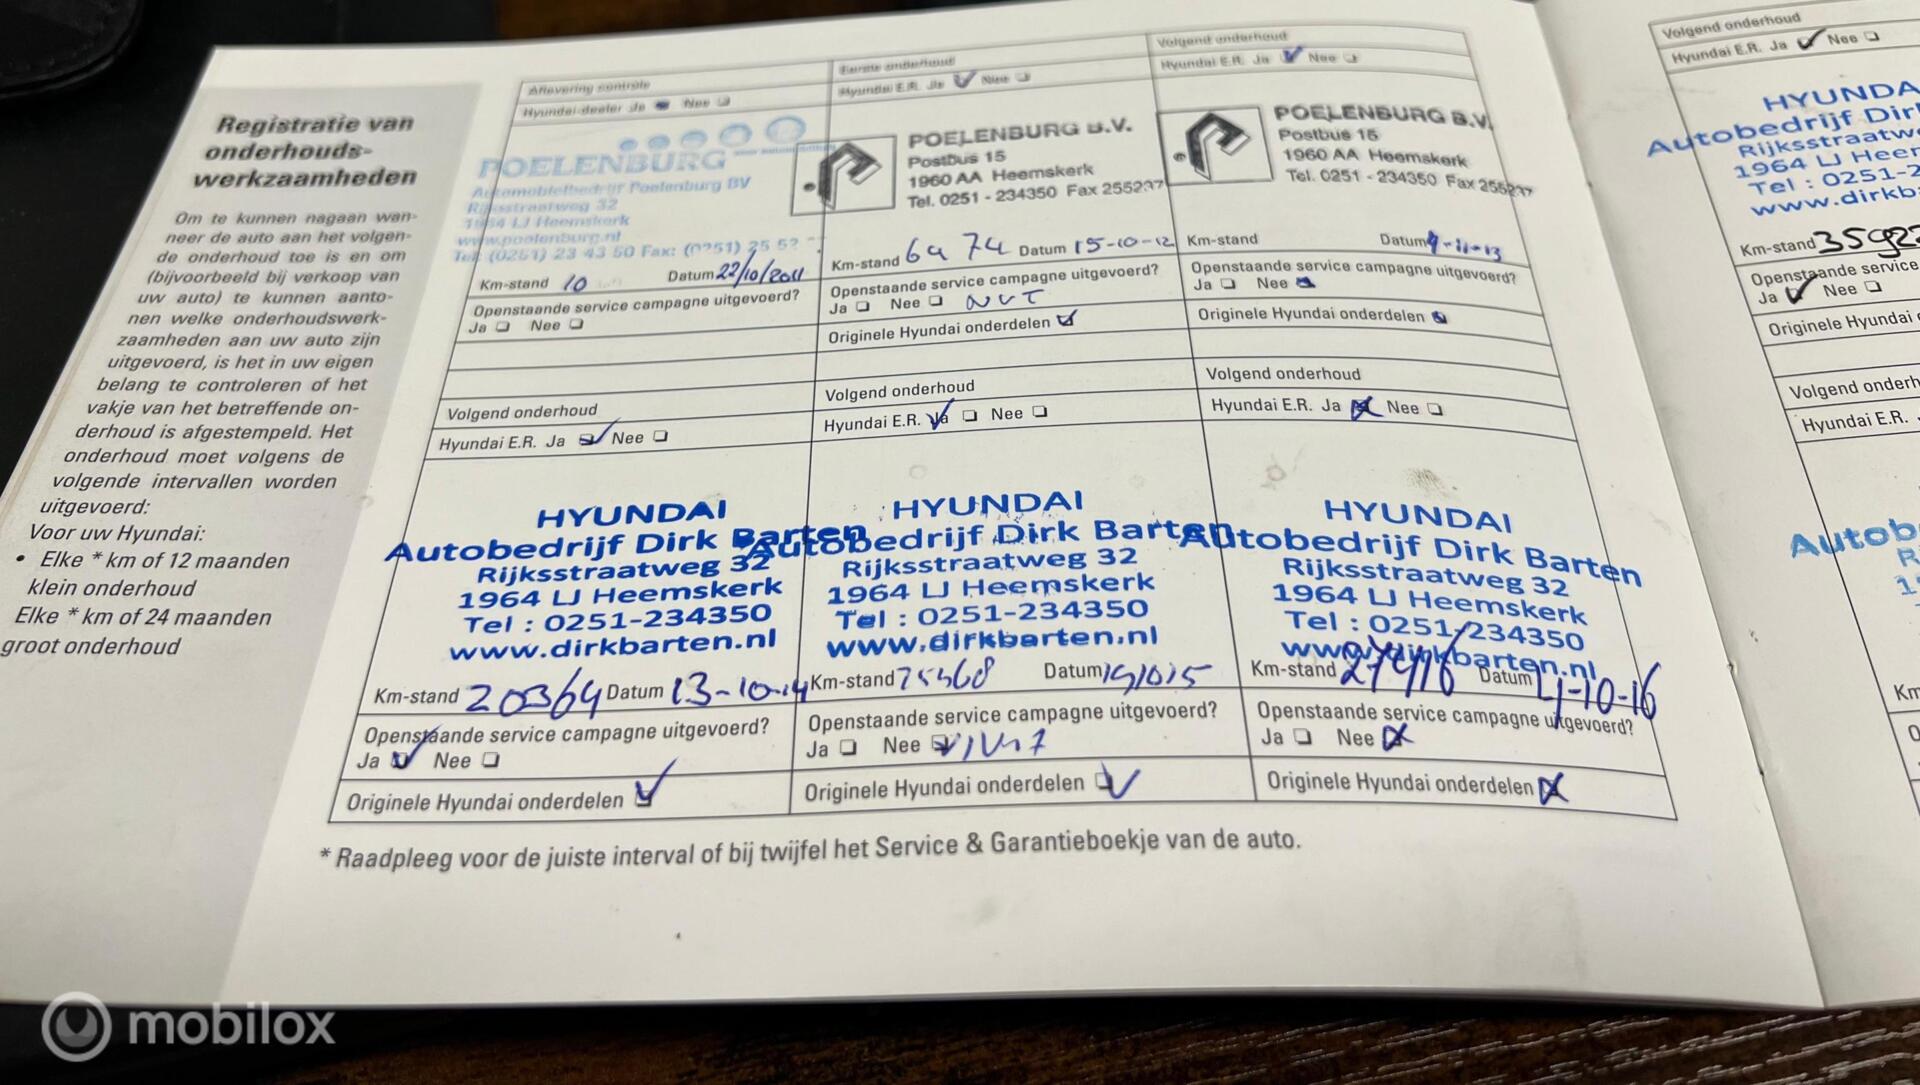 Registratie van
onderhouds-
werkzaamheden
Om te kunnen nagaan wan-
neer de auto aan het volgen-
de onderhoud toe is en om
(bijvoorbeeld bij verkoop van
uw auto) te kunnen aanto-
nen welke onderhoudswerk-
zaamheden aan uw auto zijn
uitgevoerd, is het in uw eigen
belang te controleren of het
vakje van het betreffende on-
derhoud is afgestempeld. Het
onderhoud moet volgens de
volgende intervallen worden
uitgevoerd:
Voor uw Hyundai:
• Elke * km of 12 maanden
klein onderhoud
Elke * km of 24 maanden
groot onderhoud
Aflevering controle
Hyundai-dealer Ja Nee
POELENBURG
Automobielbedrijf Poelenburg BV
Rijksstraatweg 32
1964 LJ Heemskerk
www.poelenburg.nl
Tel: (0251) 23 43 50 Fax: (0251) 25 52
Km-stand 10 Datum 22/10/2011
Openstaande service campagne uitgevoerd?
Ja Nee
Eerste onderhoud
Hyundai E.R. Ja Nee
POELENBURG B.V.
Postbus 15
1960 AA Heemskerk
Tel. 0251 - 234350 Fax 255237
Km-stand 6974 Datum 15-10-12
Openstaande service campagne uitgevoerd?
Ja Nee NVT
Originele Hyundai onderdelen
Volgend onderhoud
Hyundai E.R. Ja Nee
POELENBURG B.V.
Postbus 15
1960 AA Heemskerk
Tel. 0251 - 234350 Fax 255237
Km-stand Datum 9-11-13
Openstaande service campagne uitgevoerd?
Ja Nee
Originele Hyundai onderdelen
Volgend onderhoud
Hyundai E.R. Ja Nee
HYUNDAI
Autobedrijf Dirk Barten
Rijksstraatweg 32
1964 LJ Heemskerk
Tel : 0251-234350
www.dirkbarten.nl
Km-stand 20364 Datum 13-10-14
Openstaande service campagne uitgevoerd?
Ja Nee
Originele Hyundai onderdelen
Volgend onderhoud
Hyundai E.R. Ja Nee
HYUNDAI
Autobedrijf Dirk Barten
Rijksstraatweg 32
1964 LJ Heemskerk
Tel : 0251-234350
www.dirkbarten.nl
Km-stand Datum
Openstaande service campagne uitgevoerd?
Ja Nee
Originele Hyundai onderdelen
Volgend onderhoud
Hyundai E.R. Ja Nee
HYUNDAI
Autobedrijf Dirk Barten
Rijksstraatweg 32
1964 LJ Heemskerk
Tel : 0251-234350
www.dirkbarten.nl
Km-stand 27416 Datum 4-10-16
Openstaande service campagne uitgevoerd?
Ja Nee
Originele Hyundai onderdelen
* Raadpleeg voor de juiste interval of bij twijfel het Service & Garantieboekje van de auto.
Volgend onderhoud
Hyundai E.R. Ja Nee
HYUNDA
Autobedrijf Dirk
Rijksstraatw
1964 LJ Heem
Tel : 0251-2
www.dirkb
Km-stand 35923
Openstaande service
Ja Nee
Originele Hyundai
Volgend onderh
Hyundai E.R.
Autob
Km
mobilox